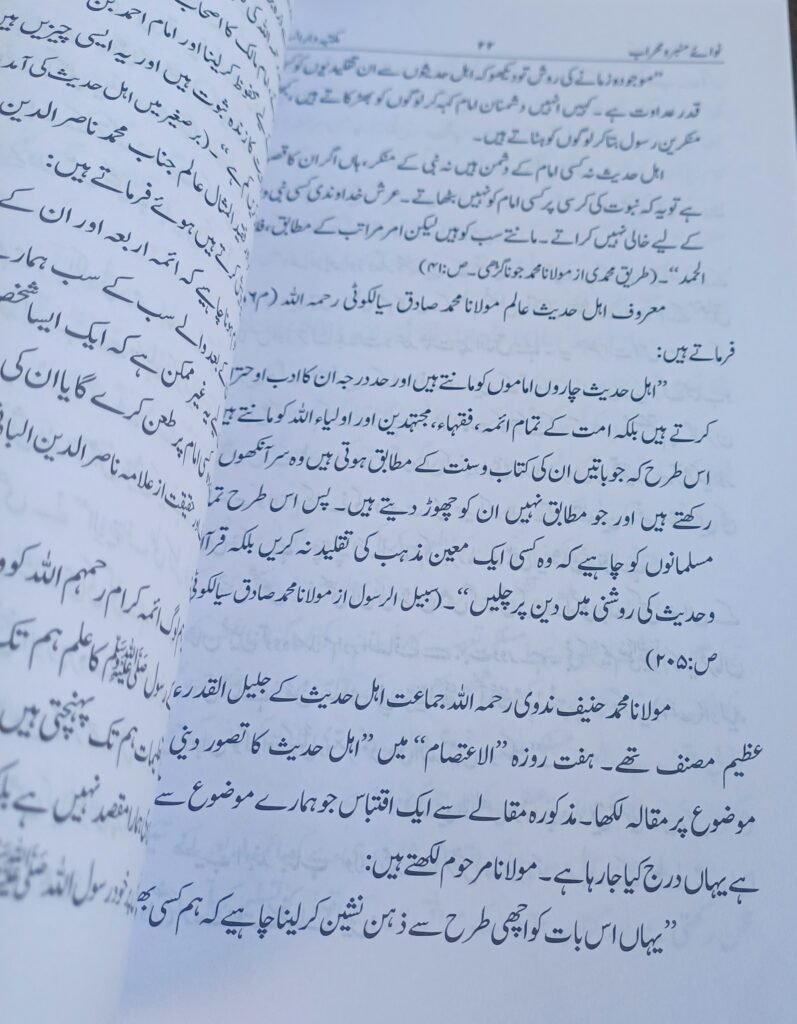 نوائے منبر و محراب
۴۴
"موجودہ زمانے کی روش تو دیکھو کہ اہل حدیثوں سے ان تقلیدیوں کو کس
قدر عداوت ہے۔ کہیں انہیں دشمنان امام کہہ کر لوگوں کو بھڑکاتے ہیں،
منکرین رسول بتا کر لوگوں کو ہٹاتے ہیں۔
اہل حدیث نہ کسی امام کے دشمن ہیں نہ نبی کے منکر، ہاں اگر ان کا
ہے تو یہ کہ نبوت کی کرسی پر کسی امام کو نہیں بٹھاتے۔ عرش خداوندی کسی نبی و
کے لیے خالی نہیں کراتے۔ مانتے سب کو ہیں لیکن امر مراتب کے مطابق،
الحمد"۔ (طریق محمدی از مولانا محمد جوناگڑھی۔ ص:۴۱)
معروف اہل حدیث عالم مولانا محمد صادق سیالکوٹی رحمہ اللہ (م
فرماتے ہیں:
"اہل حدیث چاروں اماموں کو مانتے ہیں اور حد درجہ ان کا ادب و
کرتے ہیں بلکہ امت کے تمام ائمہ، فقہاء، مجتہدین اور اولیاء اللہ کو مانتے ہیں
اس طرح کہ جو باتیں ان کی کتاب و سنت کے مطابق ہوتی ہیں وہ سر آنکھوں
رکھتے ہیں اور جو مطابق نہیں ان کو چھوڑ دیتے ہیں۔ پس اس طرح
مسلمانوں کو چاہیے کہ وہ کسی ایک معین مذہب کی تقلید نہ کریں بلکہ
و حدیث کی روشنی میں دین پر چلیں"۔ (سبیل الرسول از مولانا محمد صادق سیالکوٹی
ص:۲۰۵)
مولانا محمد حنیف ندوی رحمہ اللہ جماعت اہل حدیث کے جلیل القدر
عظیم مصنف تھے۔ ہفت روزہ "الاعتصام" میں "اہل حدیث کا تصور دینی
موضوع پر مقالہ لکھا۔ مذکورہ مقالے سے ایک اقتباس جو ہمارے موضوع سے
ہے یہاں درج کیا جا رہا ہے۔ مولانا مرحوم لکھتے ہیں:
"یہاں اس بات کو اچھی طرح سے ذہن نشین کر لینا چاہیے کہ ہم کسی
محفوظ کر لینا اور امام احمد بن
زندہ ثبوت ہیں اور یہ ایسی چیزیں ہیں
(برصغیر میں اہل حدیث کی آمد
المثال عالم جناب محمد ناصر الدین
کرتے ہیں ہوئے فرماتے ہیں:
چاہیے کہ ائمہ اربعہ اور ان کے
والے سب کے سب ہمارے
یہ غیر ممکن ہے کہ ایک ایسا شخص
امام پر طعن کرے گا یا ان کی
از علامہ ناصر الدین
لوگ ائمہ کرام رحمہم اللہ کو
رسول ﷺ کا علم ہم تک
ہم تک پہنچتی ہیں
مقصد نہیں ہے
خود رسول اللہ ﷺ